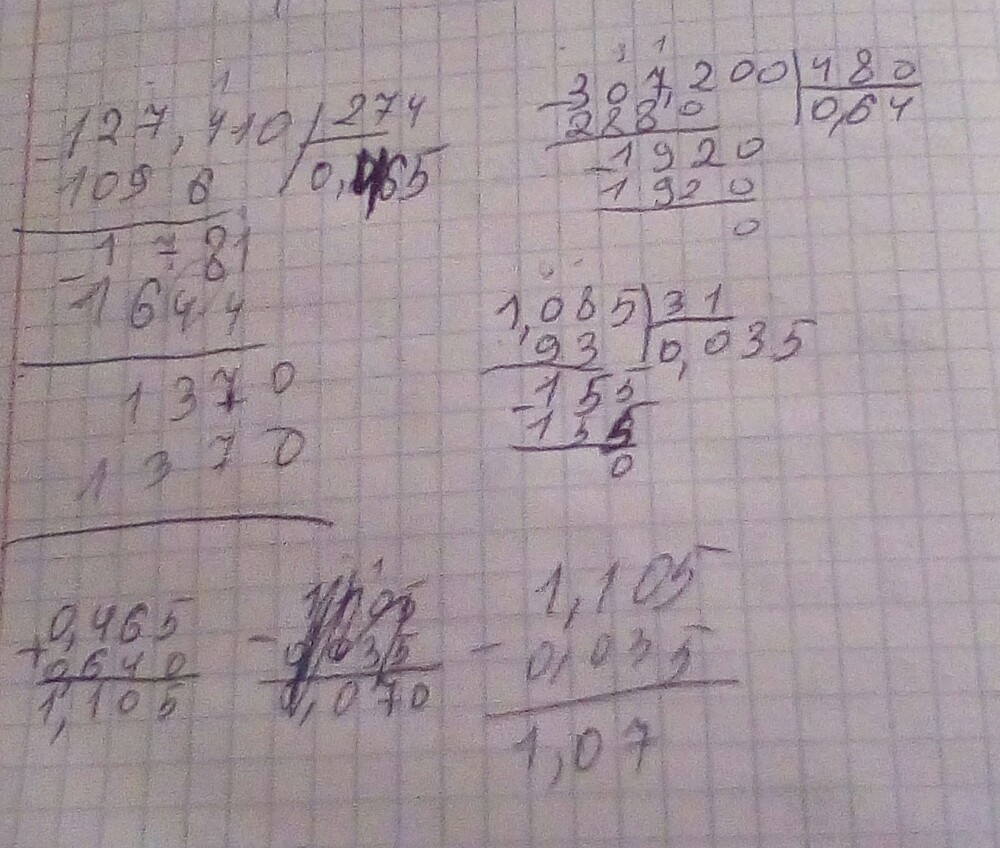 127,410 274
1096 0,465
1781
1644
1370
1370
307,200 480
2880 0,64
1920
1920
0
1,085 31
93 0,035
155
155
0
+0,465
0640
1,105
- 0,035
1,070
1,105
- 0,035
1,07